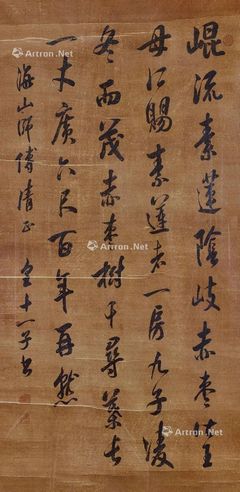 崐流素蓮陰岐赤棗王
母以賜素蓮者一房九子凌
冬而茂赤棗樹千尋葉長
一丈廣六尺百年再熟
海山師傅清正 皇十一子書
Artron.Net
Artron.Net
Artron.Net
Artron.Net